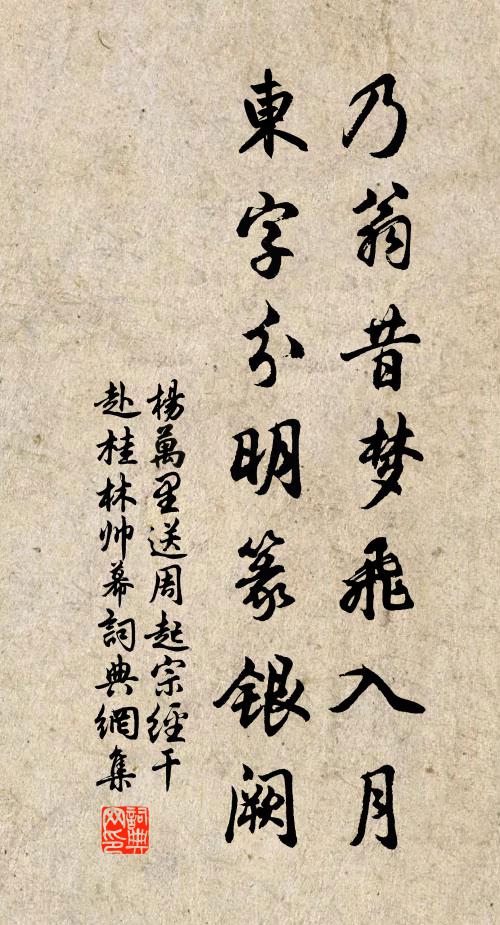 乃翁昔梦飛入月
東字分明篆銀阙
楊萬里送周起宗經干
赴桂林帅幕詞典網集
詞典网印